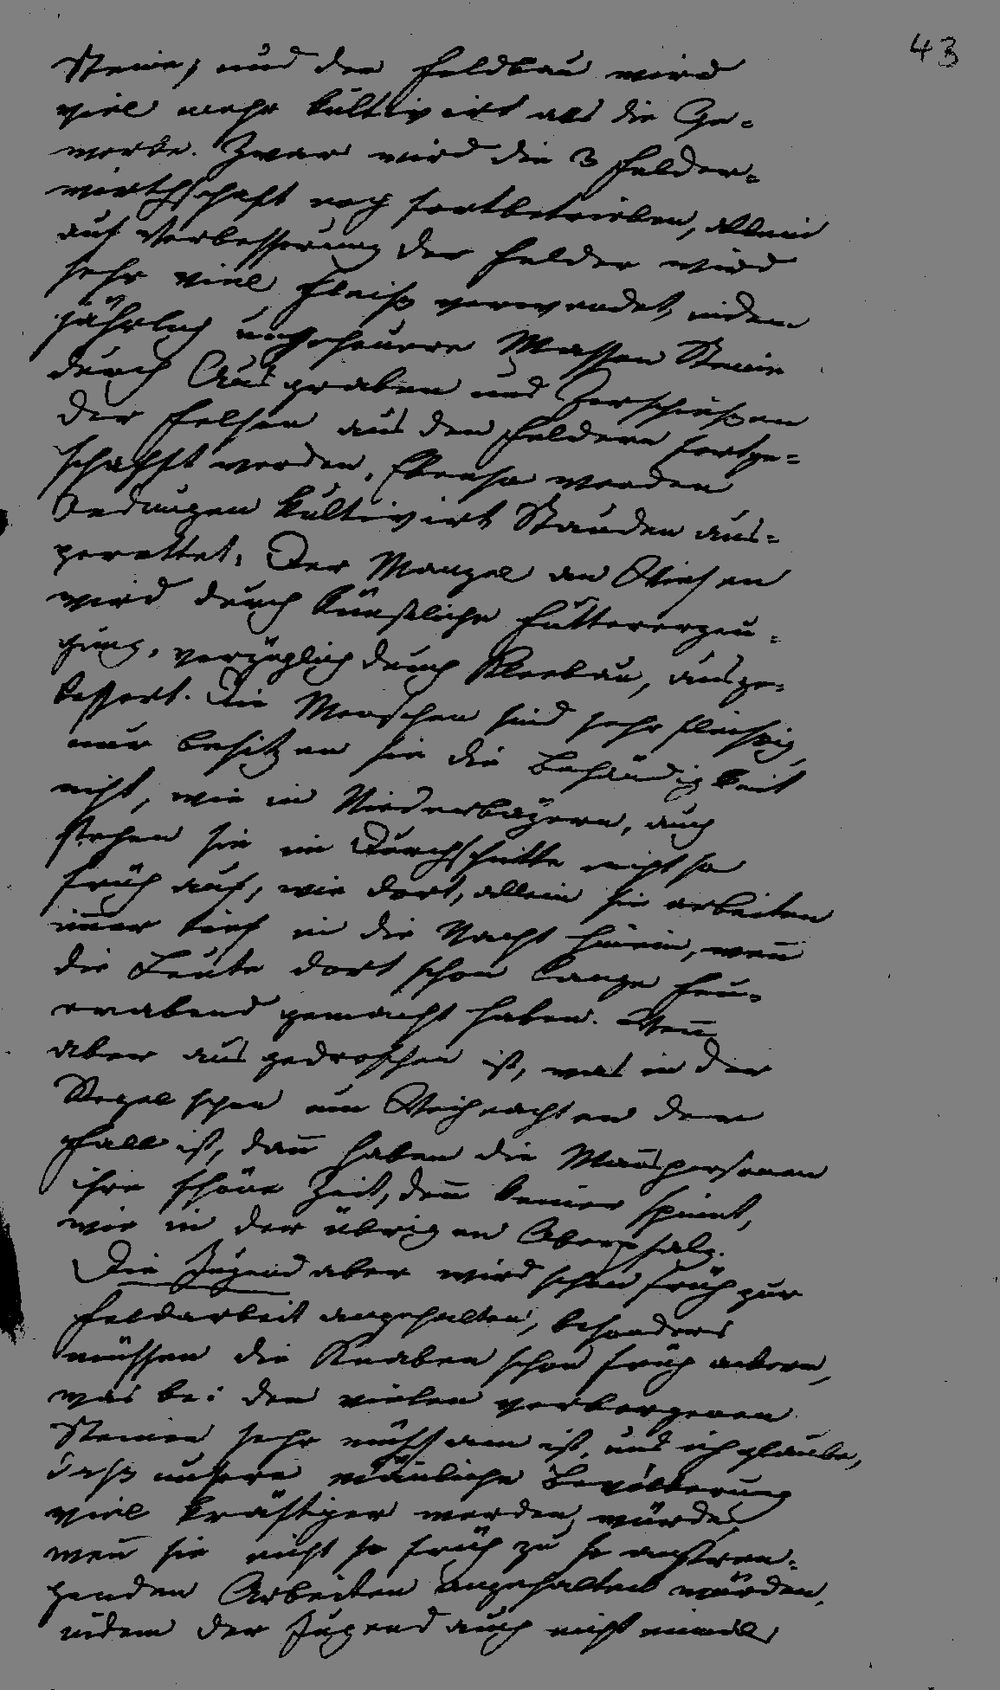 43
Steine, und der Feldbau wird
viel mehr kultivirt als die Ge-
werbe. Zwar wird die 3 Felder-
wirthschaft noch fortbetrieben, allein
auf Verbesserung der Felder wird
sehr viel Fleiß verwendet, indem
jährlich ungeheuere Massen Steine
durch Ausgraben und Zerschießen
der Felsen aus den Feldern fortge-
schafft werden. Ebenso werden
Oedungen kultivirt Stauden aus-
gerottet. Der Mangel an Wiesen
wird durch künstliche Futtererzeu-
gung, vorzüglich durch Kleebau, ausge-
bessert. Die Menschen sind sehr fleißig,
nur besitzen sie die Behändigkeit
nicht, wie in Niederbayern, auch
stehen sie im Durchschnitte nicht so
früh auf, wie dort, allein sie arbeiten
im̅er tief in die Nacht hinein, wen̅
die Leute dort schon lange Feu-
erabend gemacht haben. Wen̅
aber ausgedroschen ist, was in der
Regel schon um Weihnachten der
Fall ist, dan̅ haben die Man̅spersonen
ihre schöne Zeit, den̅ keiner spinnt,
wie in der übrigen Oberpfalz.
Die Jugend aber wird schon früh zur
Feldarbeit angehalten, besonders
müssen die Knaben schon früh ackern,
was bei den vielen verborgenen
Steinen sehr mühsam ist, und ich glaube,
daß unsere män̅liche Bevölkerung
viel kräftiger werden würde,
wen̅ sie nicht so früh zu so anstren-
genden Arbeiten angehalten würden,
indem der Jugend auch nicht einmal